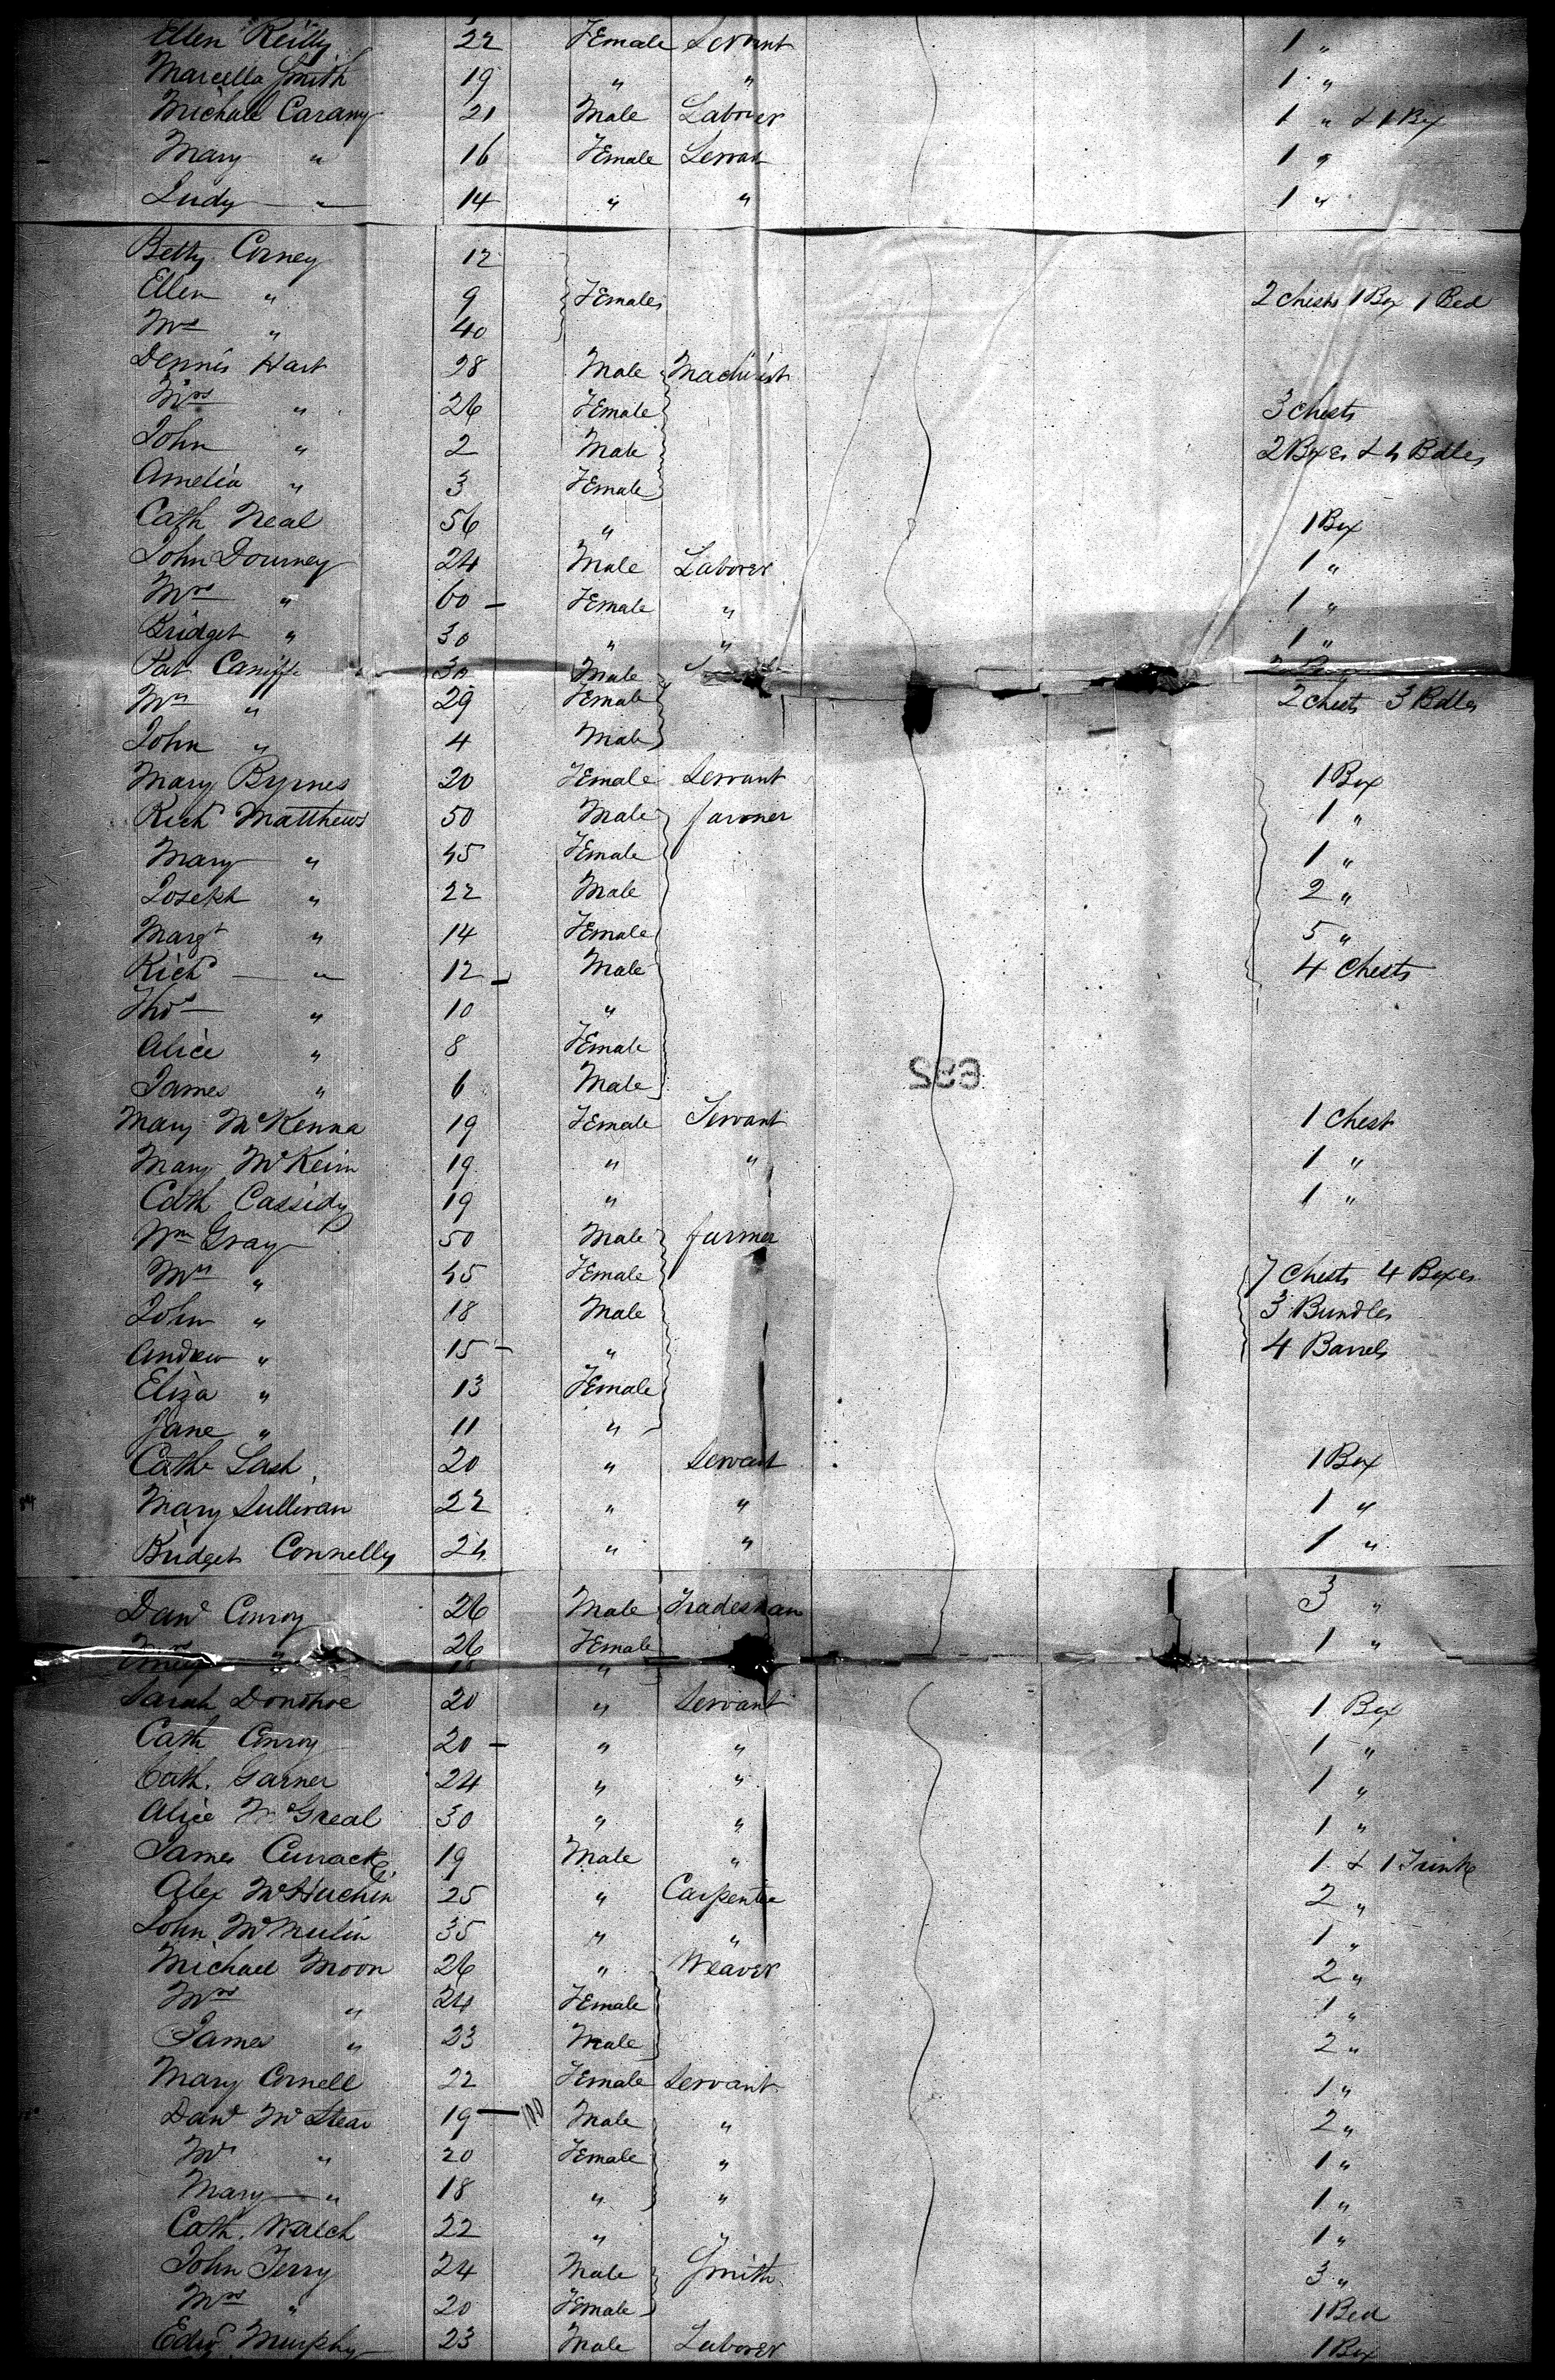 Ellen Reilly 22 Female Servant 1 "
Marcella Smith 19 " " 1 "
Michale Carany 21 Male Laborer 1 " & 1 Box
Mary " 16 Female Servant 1 "
Judy " 14 " " 1 "
Betty Corney 12
Ellen " 9 Females 2 Chests 1 Box 1 Bed
Mrs " 40
Dennis Hart 28 Male Machinist
Mrs " 26 Female 3 Chests
John " 2 Male 2 Boxes & 4 Bdles
Amelia " 3 Female
Cath Neal 56 " 1 Box
John Dourney 24 Male Laborer 1 "
Mrs " 60 - Female " 1 "
Bridget " 30 " " 1 "
Pat Caniffe 30 Male
Mrs " 29 Female 2 Chests 3 Bdles
John " 4 Male
Mary Byrnes 20 Female Servant 1 Box
Richd Matthews 50 Male farmer 1 "
Mary " 45 Female 1 "
Joseph " 22 Male 2 "
Margt " 14 Female 5 "
Richd " 12 - Male 4 Chests
Thos " 10 "
Alice " 8 Female
James " 6 Male
Mary McKenna 19 Female Servant 1 Chest
Mary McKeirn 19 " " 1 "
Cath Cassidy 19 " 1 "
Wm Gray 50 Male farmer
Mrs " 45 Female 7 Chests 4 Boxes
John " 18 Male 3 Bundles
Andrew " 15 - " 4 Barrels
Eliza " 13 Female
Jane " 11 "
Cathe Lash 20 " Servant 1 Box
Mary Sullivan 22 " " 1 "
Bridget Connelly 24 " " 1 "
Davd Conroy 26 Male Tradesman 3 "
Mrs " 26 Female 1 "
18 "
Sarah Donohoe 20 " Servant 1 Box
Cath Conroy 20 - " " 1 "
Cath. Garner 24 " " 1 "
Alice McGreal 30 " " 1 "
James Cusack 19 Male " 1 & 1 Trunk
Alex McHuchin 25 " Carpenter 2 "
John McMulin 35 " " 1 "
Michael Moon 26 " Weaver 2 "
Mrs " 24 Female 1 "
James " 23 Male 2 "
Mary Cornell 22 Female Servant 1 "
Davd McStear 19 - Male " 2 "
Mrs " 20 Female " 1 "
Mary " 18 " " 1 "
Cath. Walch 22 " " 1 "
John Terry 24 Male Smith 3 "
Mrs " 20 Female 1 Bed
Edwd Murphy 23 Male Laborer 1 Box